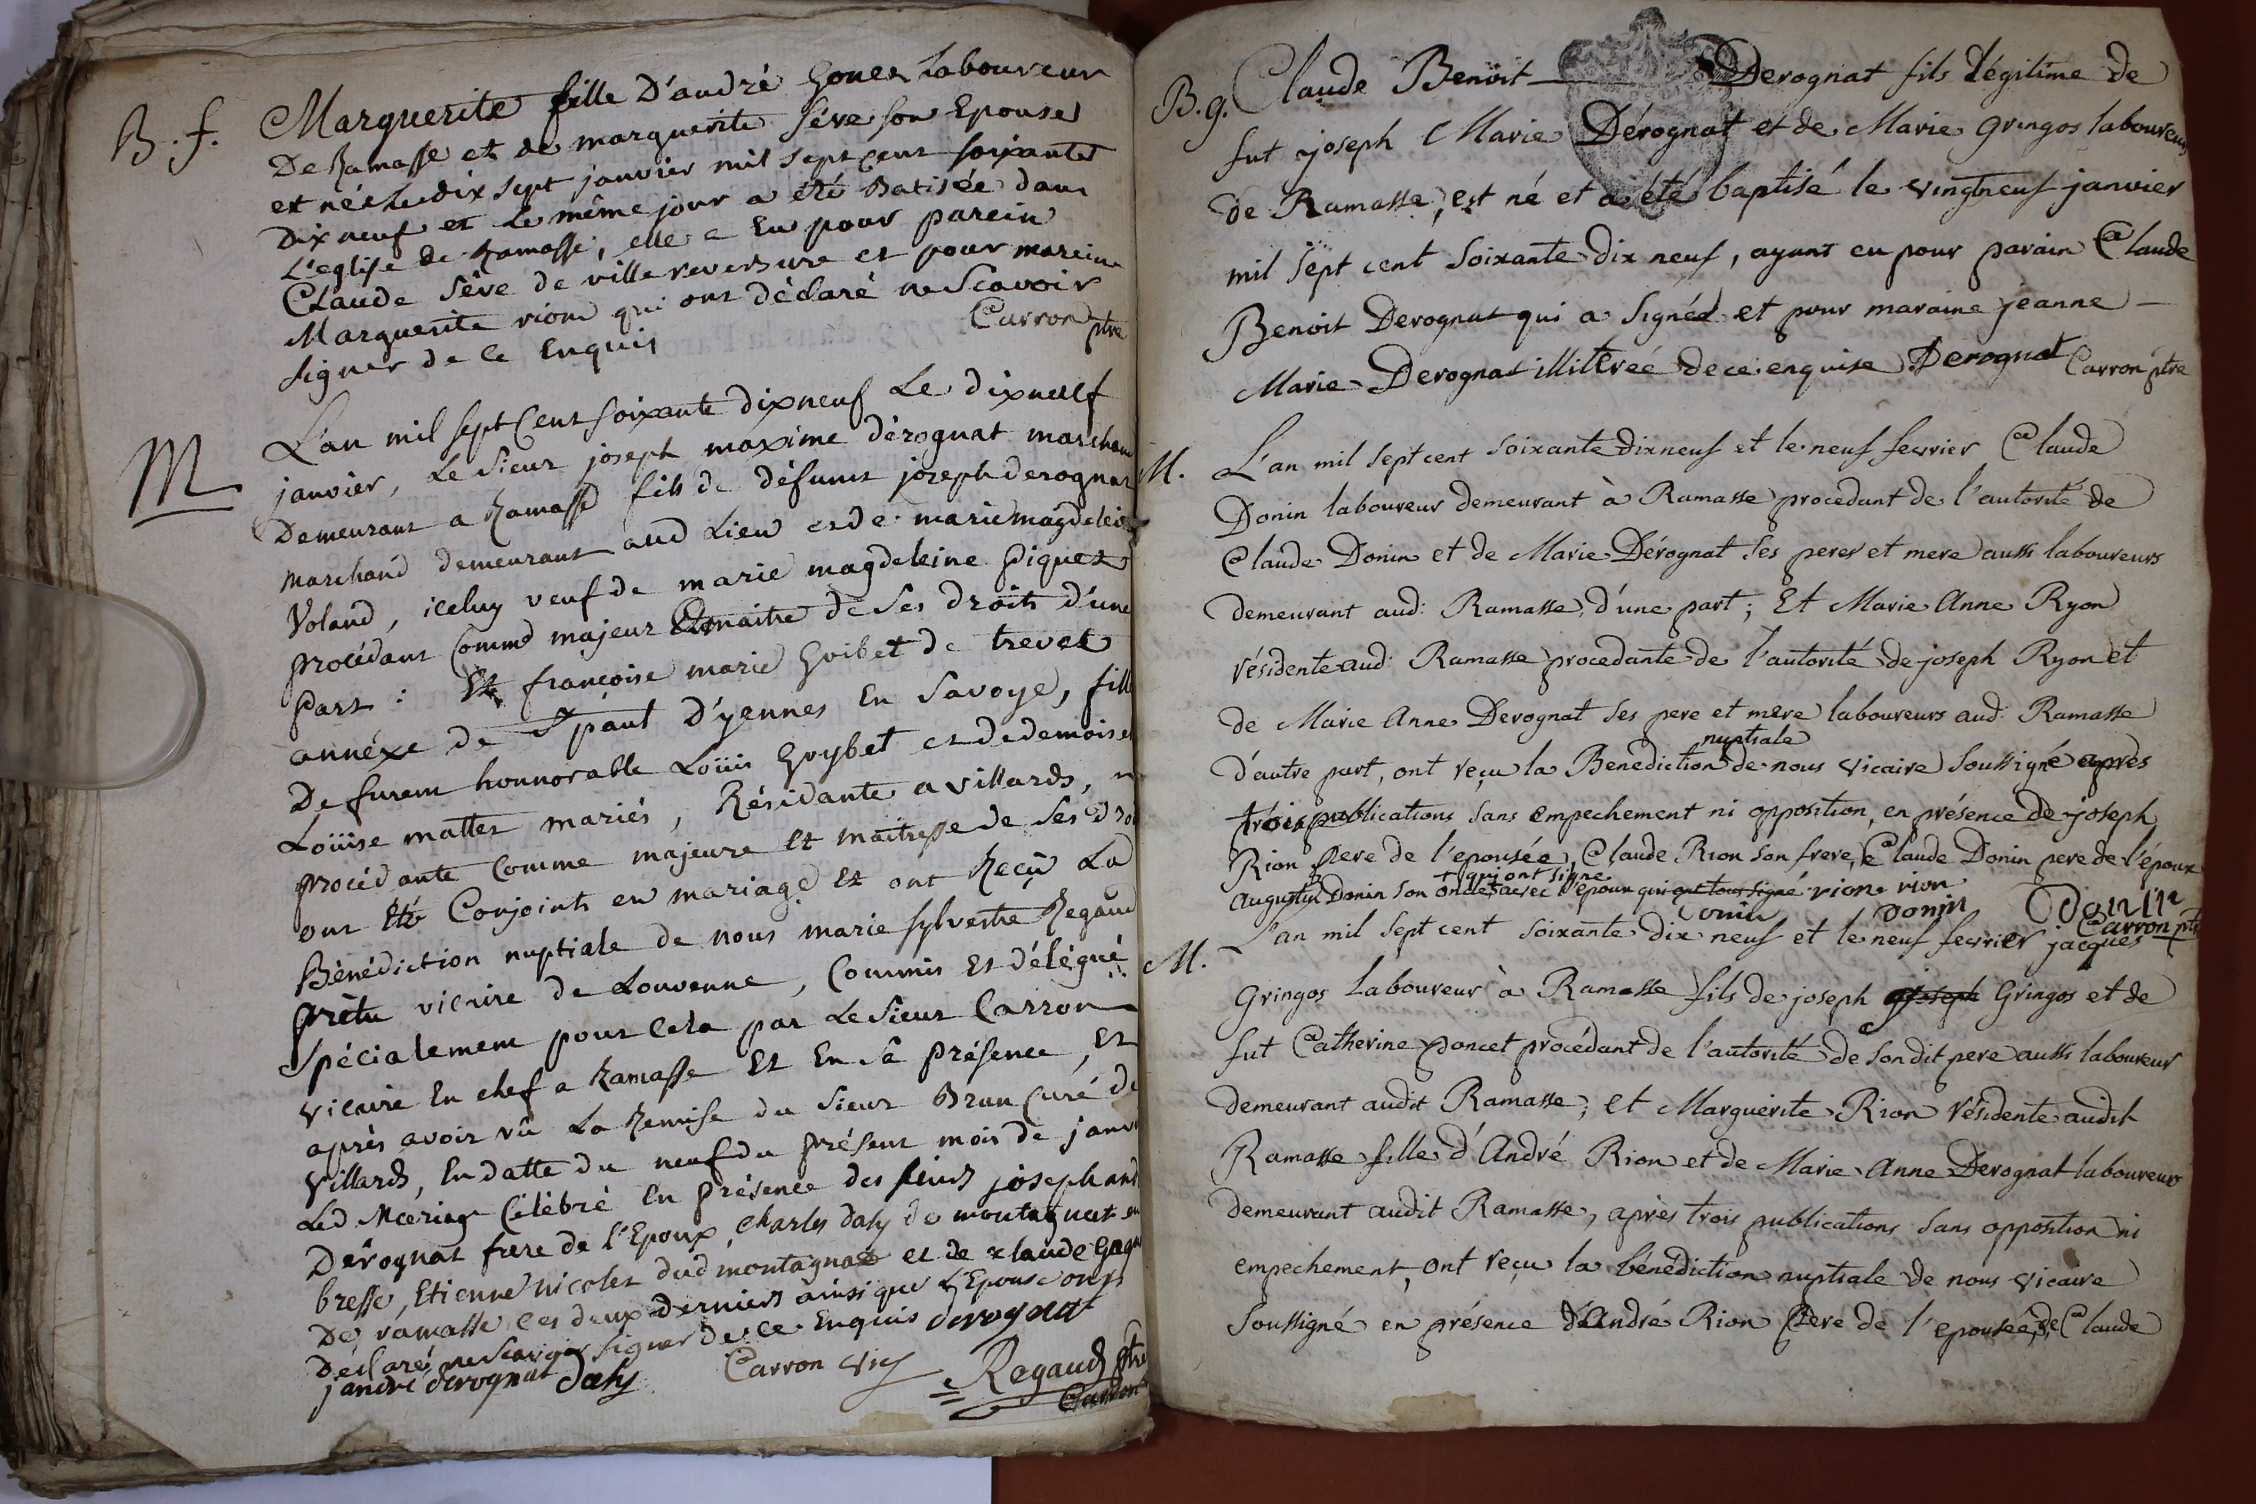 B. f.
Marguerite fille D'andré Gonet laboureur
De Ramasse et de marguerite séve son Epouse
et née le dix sept janvier mil sept cent soixante
Dix neuf et Le même jour a été Batisée dans
L'eglise de Ramasse, elle a Eu pour parein
Claude séve de villereversure et pour mareine
Marguerite riond qui ont déclaré ne Scavoir
signer de ce Enquis Carron ptre
M
L'an mil sept Cent soixante dixneuf Le dixneuf
janvier, Le Sieur joseph maxime dérognat marchand
Demeurant a Ramasse fils de défunt joseph derognat
marchand demeurant aud Lieu et de marie magdeleine
Voland, iceluy veuf de marie magdeleine Piquet
procédant Comme majeur Et maitre de Ses droits d'une
Part : Et françoise marie Goibet de trevet
annéxe de St paul D'yennes En Savoye, fille
De furent honnorable Loüis Goybet et de demoiselle
Loüise mattet mariés, Résidante a villards,
procédante Comme majeure et maitresse de Ses dro
ont Eté Conjoints en mariage et ont Reçû La
Bénédiction nuptiale de nous marie sylvestre Regaud
prêtre vicaire de Louvenne, Commis Et délégué
Spécialement pour Cela par Le Sieur Carron
vicaire En chef a Ramasse Et En sa présence, Et
après avoir vû La Remise du Sieur Brun Curé de
villards, En datte du neuf du présent mois de janv
Led Mariage Célébré En présence des sieurs joseph and
Dérognat frere de l'Epoux, Charles daly de montagnat en
bresse, Etienne nicolet dud montagnat et de claude Gagn
De ramasse Les deux derniers ainsi que L'Epouse ont
Déclaré ne Scavoir Signer de ce Enquis derognat
j andré derognat Daly Carron vic Regaud ptre
Carron
B. g. Claude Benoit Derognat fils Légitime de
fut joseph Marie Dérognat et de Marie Gringos laboureurs
de Ramasse, est né et a été baptisé le vingtneuf janvier
mil Sept cent Soixante dix neuf, ayant eu pour parain Claude
Benoit Derognat qui a Signé et pour maraine jeanne
Marie Derognat illiterée de ce enquise Derognat Carron ptre
M. L'an mil Sept cent Soixante dixneuf et le neuf fevrier Claude
Donin laboureur demeurant à Ramasse procedant de l'autorité de
Claude Donin et de Marie Dérognat Ses peres et mere aussi laboureurs
demeurant aud: Ramasse, d'une part; Et Marie Anne Ryon
résidente aud: Ramasse procedante de l'autorité de joseph Ryon et
de Marie Anne Derognat Ses pere et mere laboureurs aud: Ramasse
d'autre part, ont reçu la Benediction nuptiale de nous vicaire Soussigné après
trois publications Sans empechement ni opposition, en présence de joseph
Rion Pere de l'epousée, Claude Rion Son frere, Claude Donin pere de l'époux
Augustin Donin Son oncle qui ont signé avec l'epoux qui ont tous signé rion rion
Donin Donin Donin Carron ptre
M. L'an mil Sept cent Soixante dix neuf et le neuf fevrier jacques
Gringos Laboureur à Ramasse fils de joseph joseph Gringos et de
fut Catherine Poncet procédant de l'autorité de Son dit pere aussi laboureur
demeurant audit Ramasse; et Marguérite Rion résidente audit
Ramasse fille d'André Rion et de Marie Anne Derognat laboureurs
demeurant audit Ramasse, après trois publications Sans opposition ni
empechement, ont reçu la bénédiction nuptiale de nous vicaire
Soussigné en présence d'André Rion Pere de l'epousée, de Claude